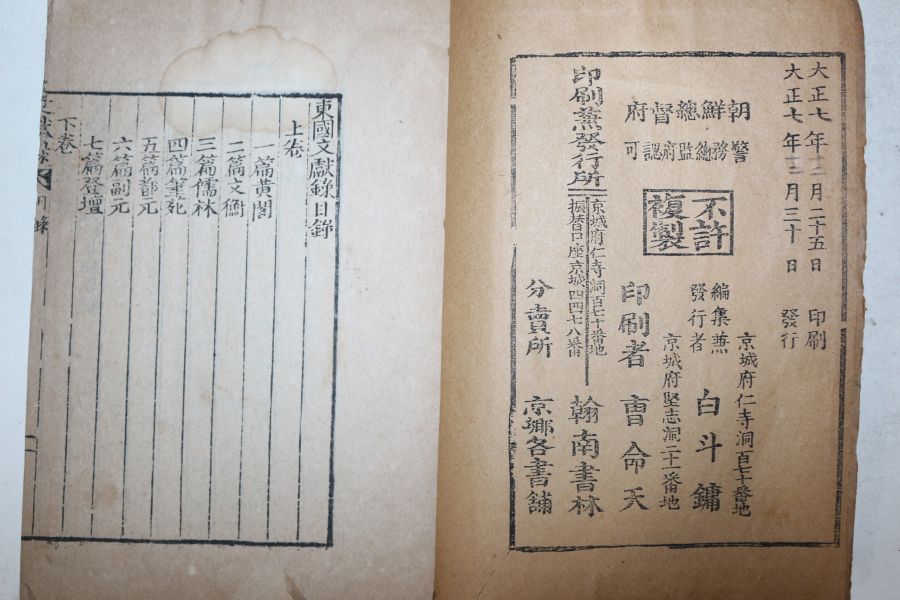 大正七年十二月二十五日 印刷
大正七年十二月三十日 發行
朝鮮總督府
警務總監府認可
不許
複製
京城府仁寺洞百七十番地
編集兼
發行者 白斗鏞
京城府堅志洞二十一番地
印刷者 曺命天
印刷兼發行所
京城府仁寺洞百七十番地
振替口座京城四四七八番
翰南書林
分賣所 京鄕各書舖
東國文獻錄目錄
上卷
一篇黃閣
二篇文衡
三篇儒林
四篇筆苑
五篇都元
六篇副元
七篇登壇
下卷